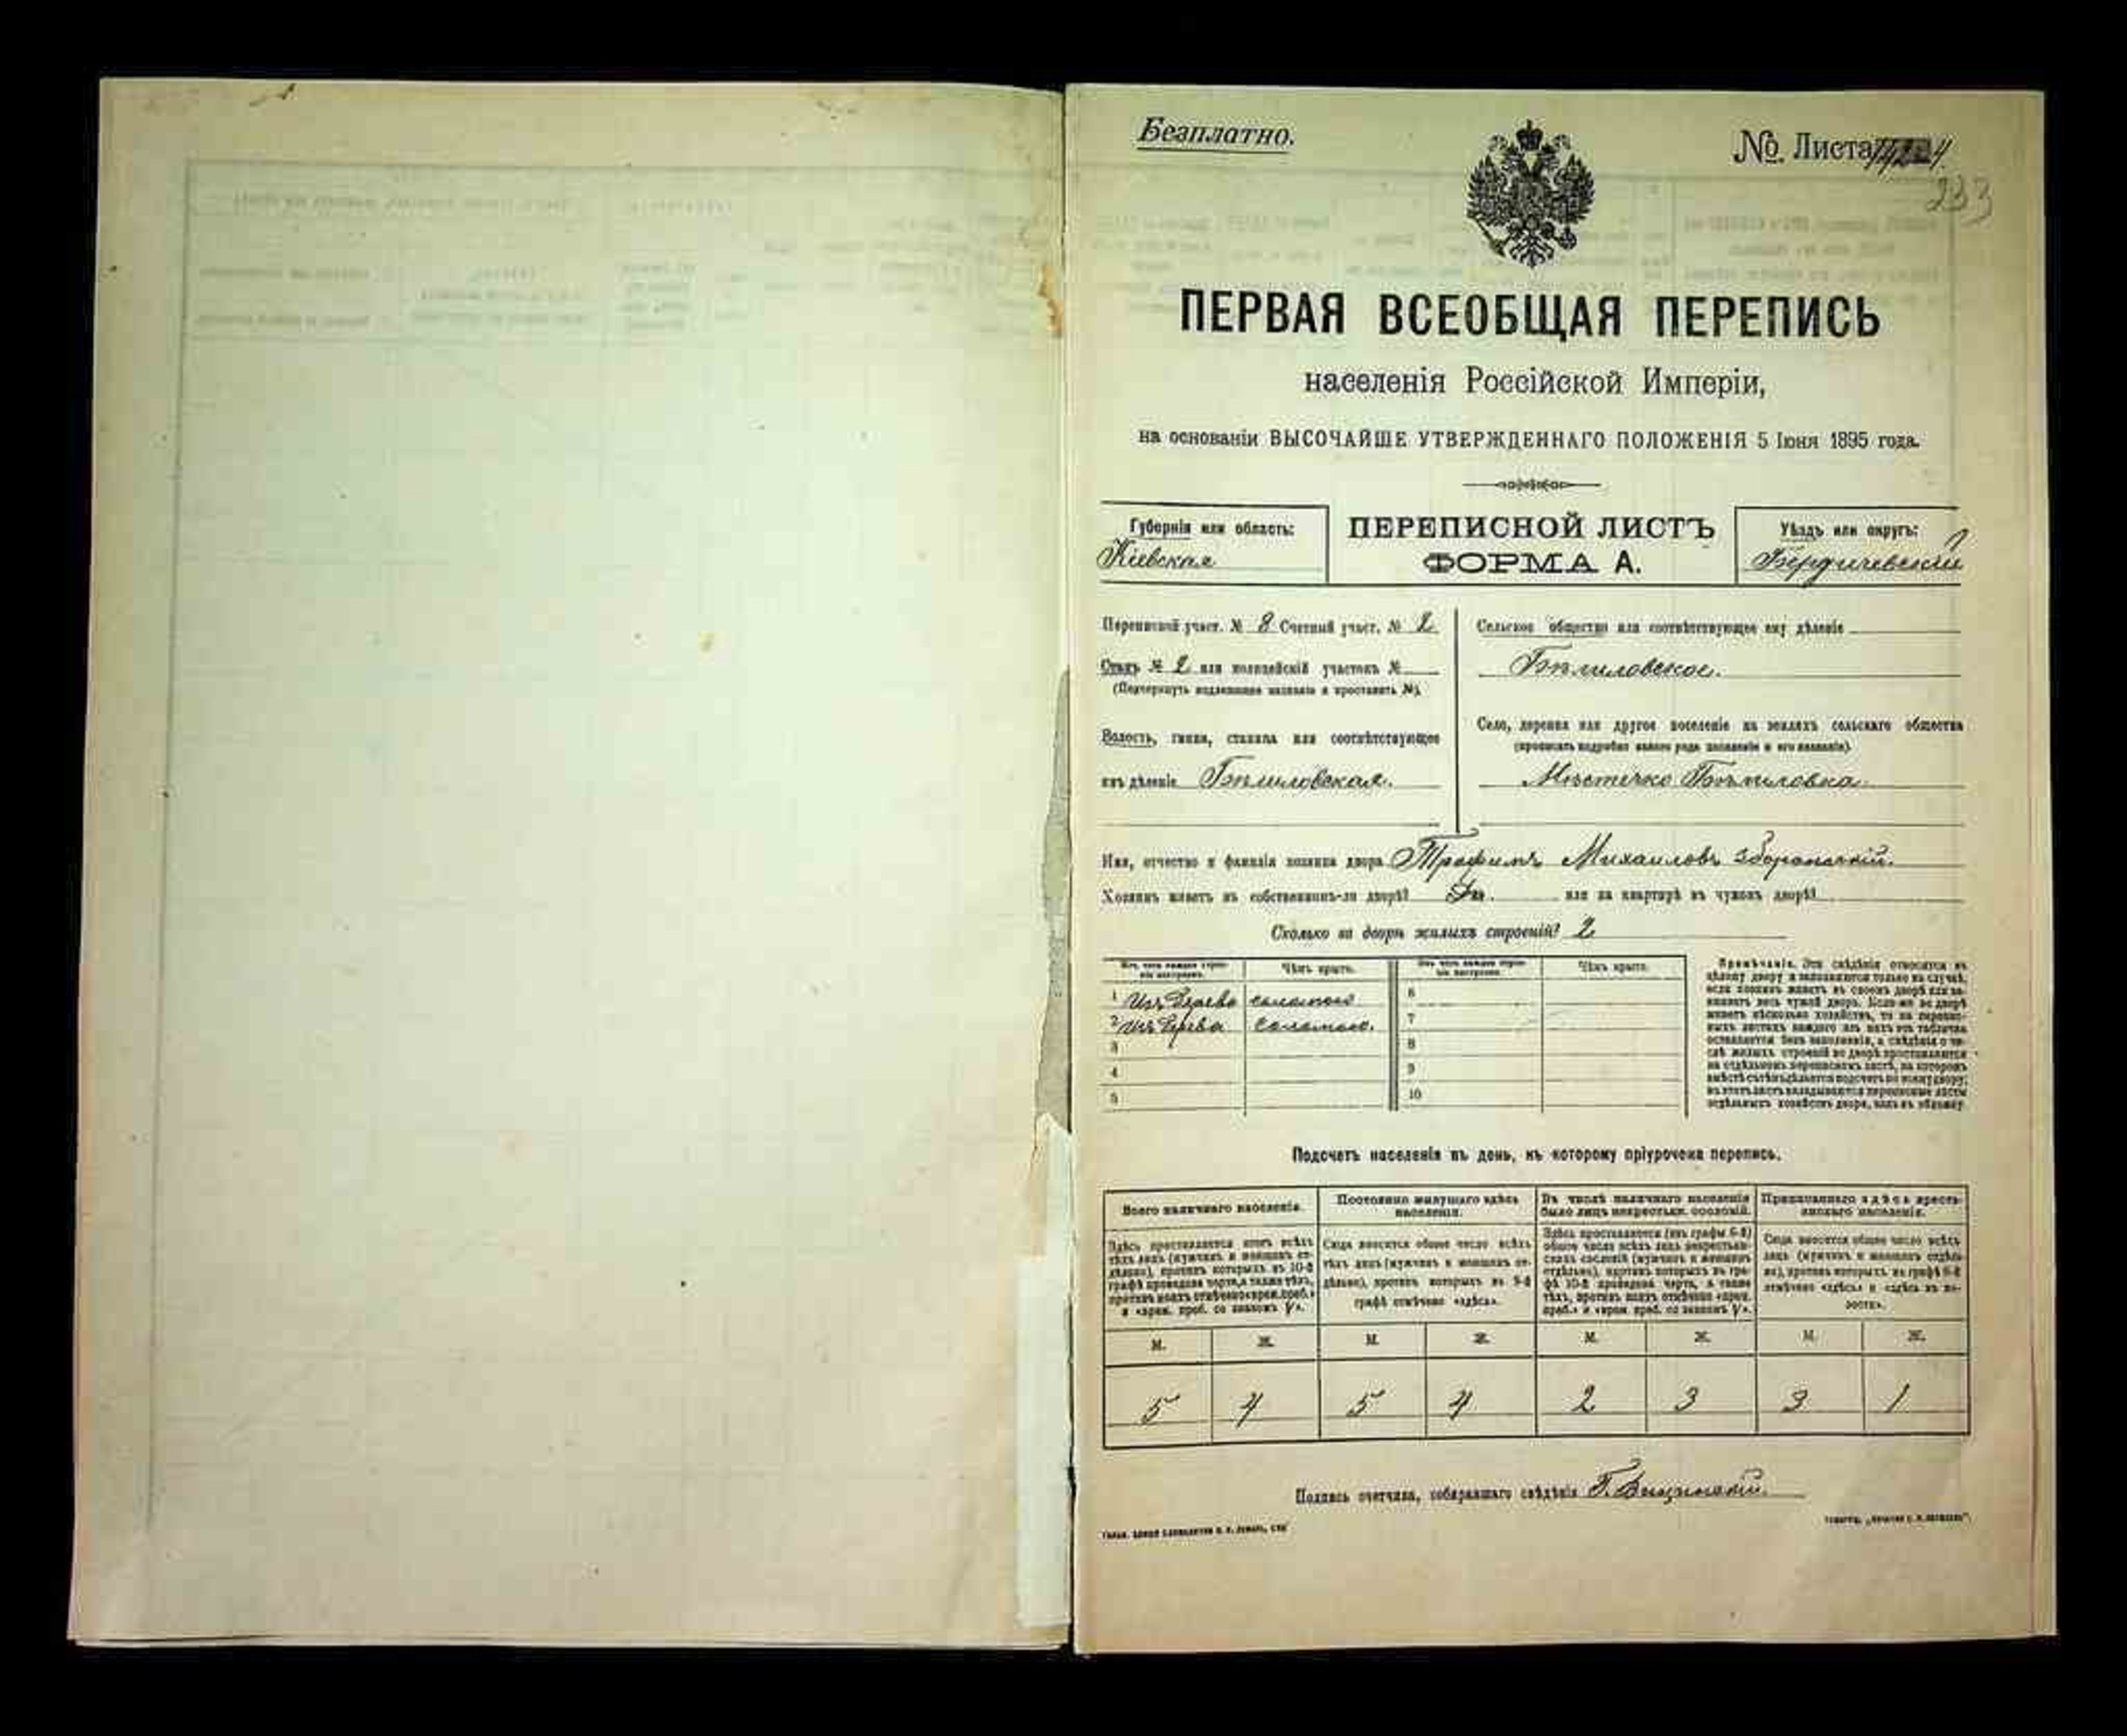 Безплатно.
№ Листа
233
ПЕРВАЯ ВСЕОБЩАЯ ПЕРЕПИСЬ
населенія Россійской Имперіи,
на основаніи ВЫСОЧАЙШЕ УТВЕРЖДЕННАГО ПОЛОЖЕНІЯ 5 Іюня 1895 года.
Губернія или область:
Кіевская
ПЕРЕПИСНОЙ ЛИСТЪ
ФОРМА А.
Уѣздъ или округъ:
Бердичевскій
Переписной участ. № 8 Счетный участ. № 2
Станъ № 2 или полицейскій участокъ №
(Подчеркнуть надлежащее названіе и проставить №).
Волость, гмина, станица или соотвѣтствующее
имъ дѣленіе Бѣлиловская.
Сельское общество или соотвѣтствующее ему дѣленіе
Бѣлиловское.
Село, деревня или другое поселеніе на земляхъ сельскаго общества
(прописать подробно какого рода поселеніе и его названіе).
Мѣстечко Бѣлиловка.
Имя, отчество и фамилія хозяина двора Трофимъ Михаиловъ
Хозяинъ живетъ въ собственномъ-ли дворѣ? или на квартирѣ въ чужомъ дворѣ?
Сколько во дворѣ жилыхъ строеній? 2
Изъ чего каждое строеніе построено.
Чѣмъ крыто.
Изъ чего каждое строеніе построено.
Чѣмъ крыто.
1 Изъ дерева соломою
2 Изъ дерева соломою.
3
4
5
6
7
8
9
10
Примѣчаніе. Эти свѣдѣнія относятся къ
цѣлому двору и заполняются только въ случаѣ,
если хозяинъ живетъ въ своемъ дворѣ или за-
нимаетъ весь чужой дворъ. Если-же во дворѣ
живетъ нѣсколько хозяйствъ, то на перепис-
ныхъ листахъ каждаго изъ нихъ эта табличка
оставляется безъ заполненія, а свѣдѣнія о чи-
слѣ жилыхъ строеній во дворѣ проставляются
на отдѣльномъ переписномъ листѣ, на которомъ
вмѣстѣ съ тѣмъ дѣлается подсчетъ по всему двору;
въ этотъ листъ вкладываются переписные листы
отдѣльныхъ хозяйствъ двора, какъ въ обложку.
Подсчетъ населенія въ день, къ которому пріурочена перепись.
Всего наличнаго населенія.
Постоянно живущаго здѣсь
населенія.
Въ числѣ наличнаго населенія
было лицъ некрестьян. сословій.
Приписаннаго здѣсь кресть-
янскаго населенія.
Здѣсь проставляется итогъ всѣхъ
тѣхъ лицъ (мужчинъ и женщинъ от-
дѣльно), противъ которыхъ въ 10-й
графѣ проведена черта, а также тѣхъ,
противъ коихъ отмѣчено «врем. преб.»
и «врем. преб. со знакомъ V».
Сюда вносится общее число всѣхъ
тѣхъ лицъ (мужчинъ и женщинъ от-
дѣльно), противъ которыхъ въ 9-й
графѣ отмѣчено «здѣсь».
Здѣсь проставляется (изъ графы 6-й)
общее число всѣхъ лицъ некрестьян-
скихъ сословій (мужчинъ и женщинъ
отдѣльно), противъ которыхъ въ гра-
фѣ 10-й проведена черта, а также
тѣхъ, противъ коихъ отмѣчено «врем.
преб.» и «врем. преб. со знакомъ V».
Сюда вносится общее число всѣхъ
лицъ (мужчинъ и женщинъ отдѣль-
но), противъ которыхъ въ графѣ 8-й
отмѣчено «здѣсь» и «здѣсь въ во-
лости».
М. Ж. М. Ж. М. Ж. М. Ж.
5 4 5 4 2 3 3 1
Подпись счетчика, собиравшаго свѣдѣнія